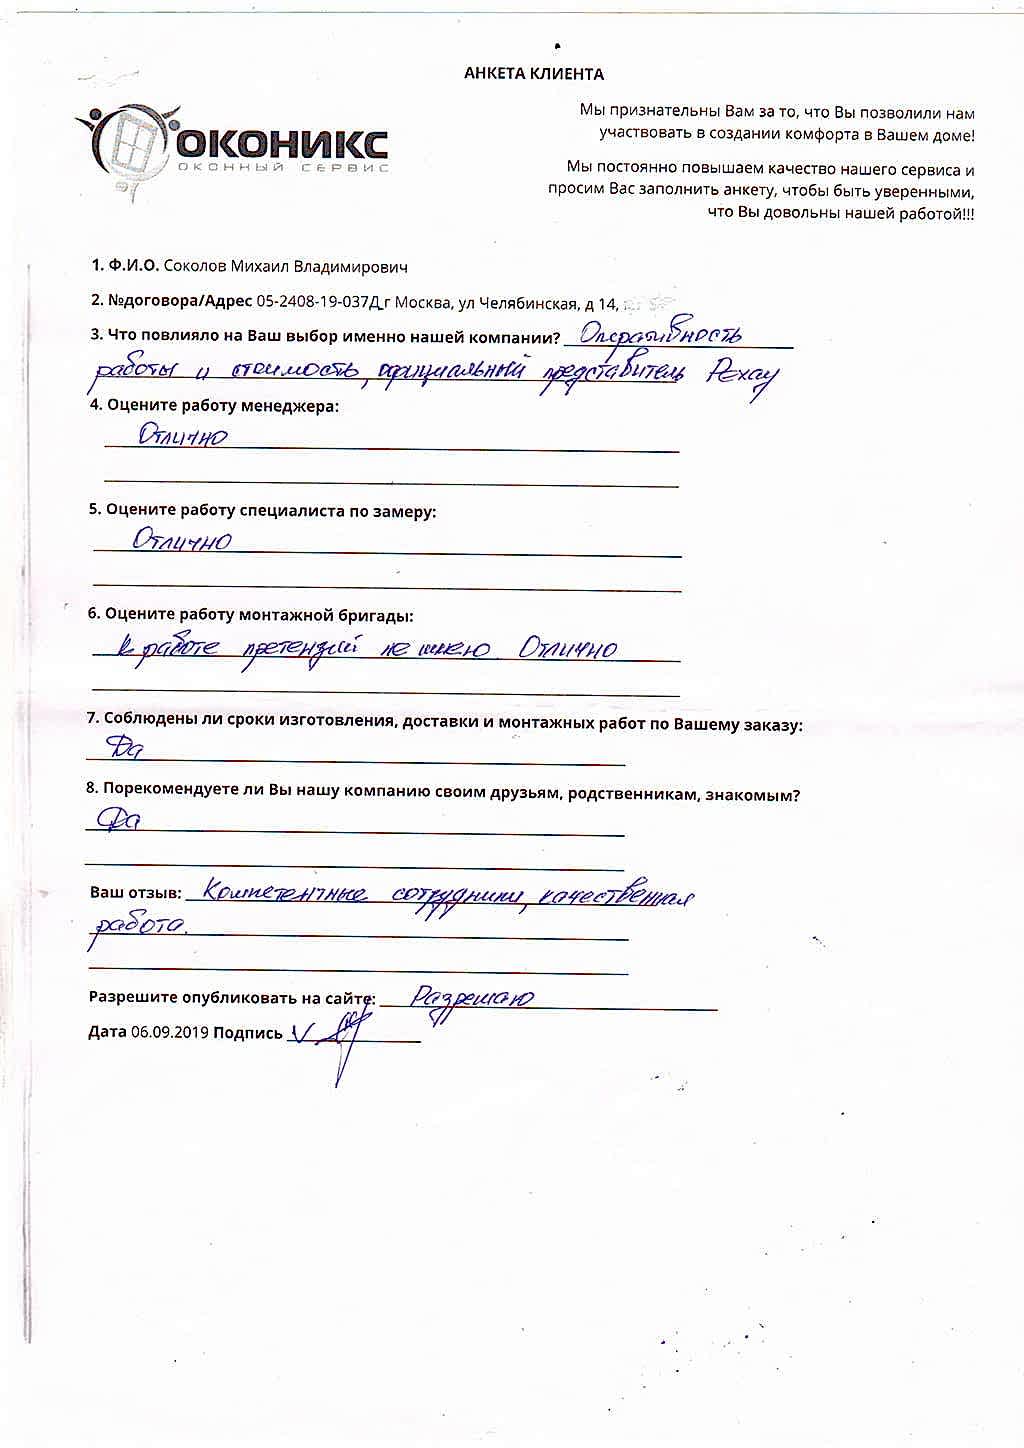 АНКЕТА КЛИЕНТА
Мы признательны Вам за то, что Вы позволили нам
участвовать в создании комфорта в Вашем доме!
ОКОНИКС
ОКОННЫЙ СЕРВИС
Мы постоянно повышаем качество нашего сервиса и
просим Вас заполнить анкету, чтобы быть уверенными,
что Вы довольны нашей работой!!!
1. Ф.И.О. Соколов Михаил Владимирович
2. №договора/Адрес 05-2408-19-037Д,г Москва, ул Челябинская, д 14,
3. Что повлияло на Ваш выбор именно нашей компании? Оперативность
работы и стоимость, официальный представитель Рехау
4. Оцените работу менеджера:
Отлично
5. Оцените работу специалиста по замеру:
Отлично
6. Оцените работу монтажной бригады:
К работе претензий не имею Отлично
7. Соблюдены ли сроки изготовления, доставки и монтажных работ по Вашему заказу:
Да
8. Порекомендуете ли Вы нашу компанию своим друзьям, родственникам, знакомым?
Да
Ваш отзыв: Компетентные сотрудники, качественная
работа.
Разрешите опубликовать на сайте: Разрешаю
Дата 06.09.2019 Подпись V